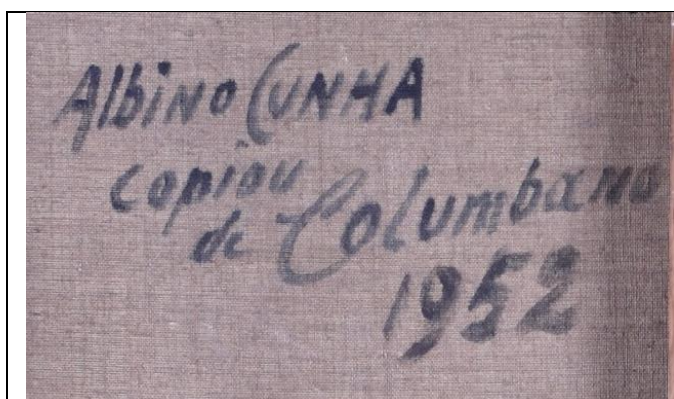 Albino CUNHA
copiou
de Columbano
1952